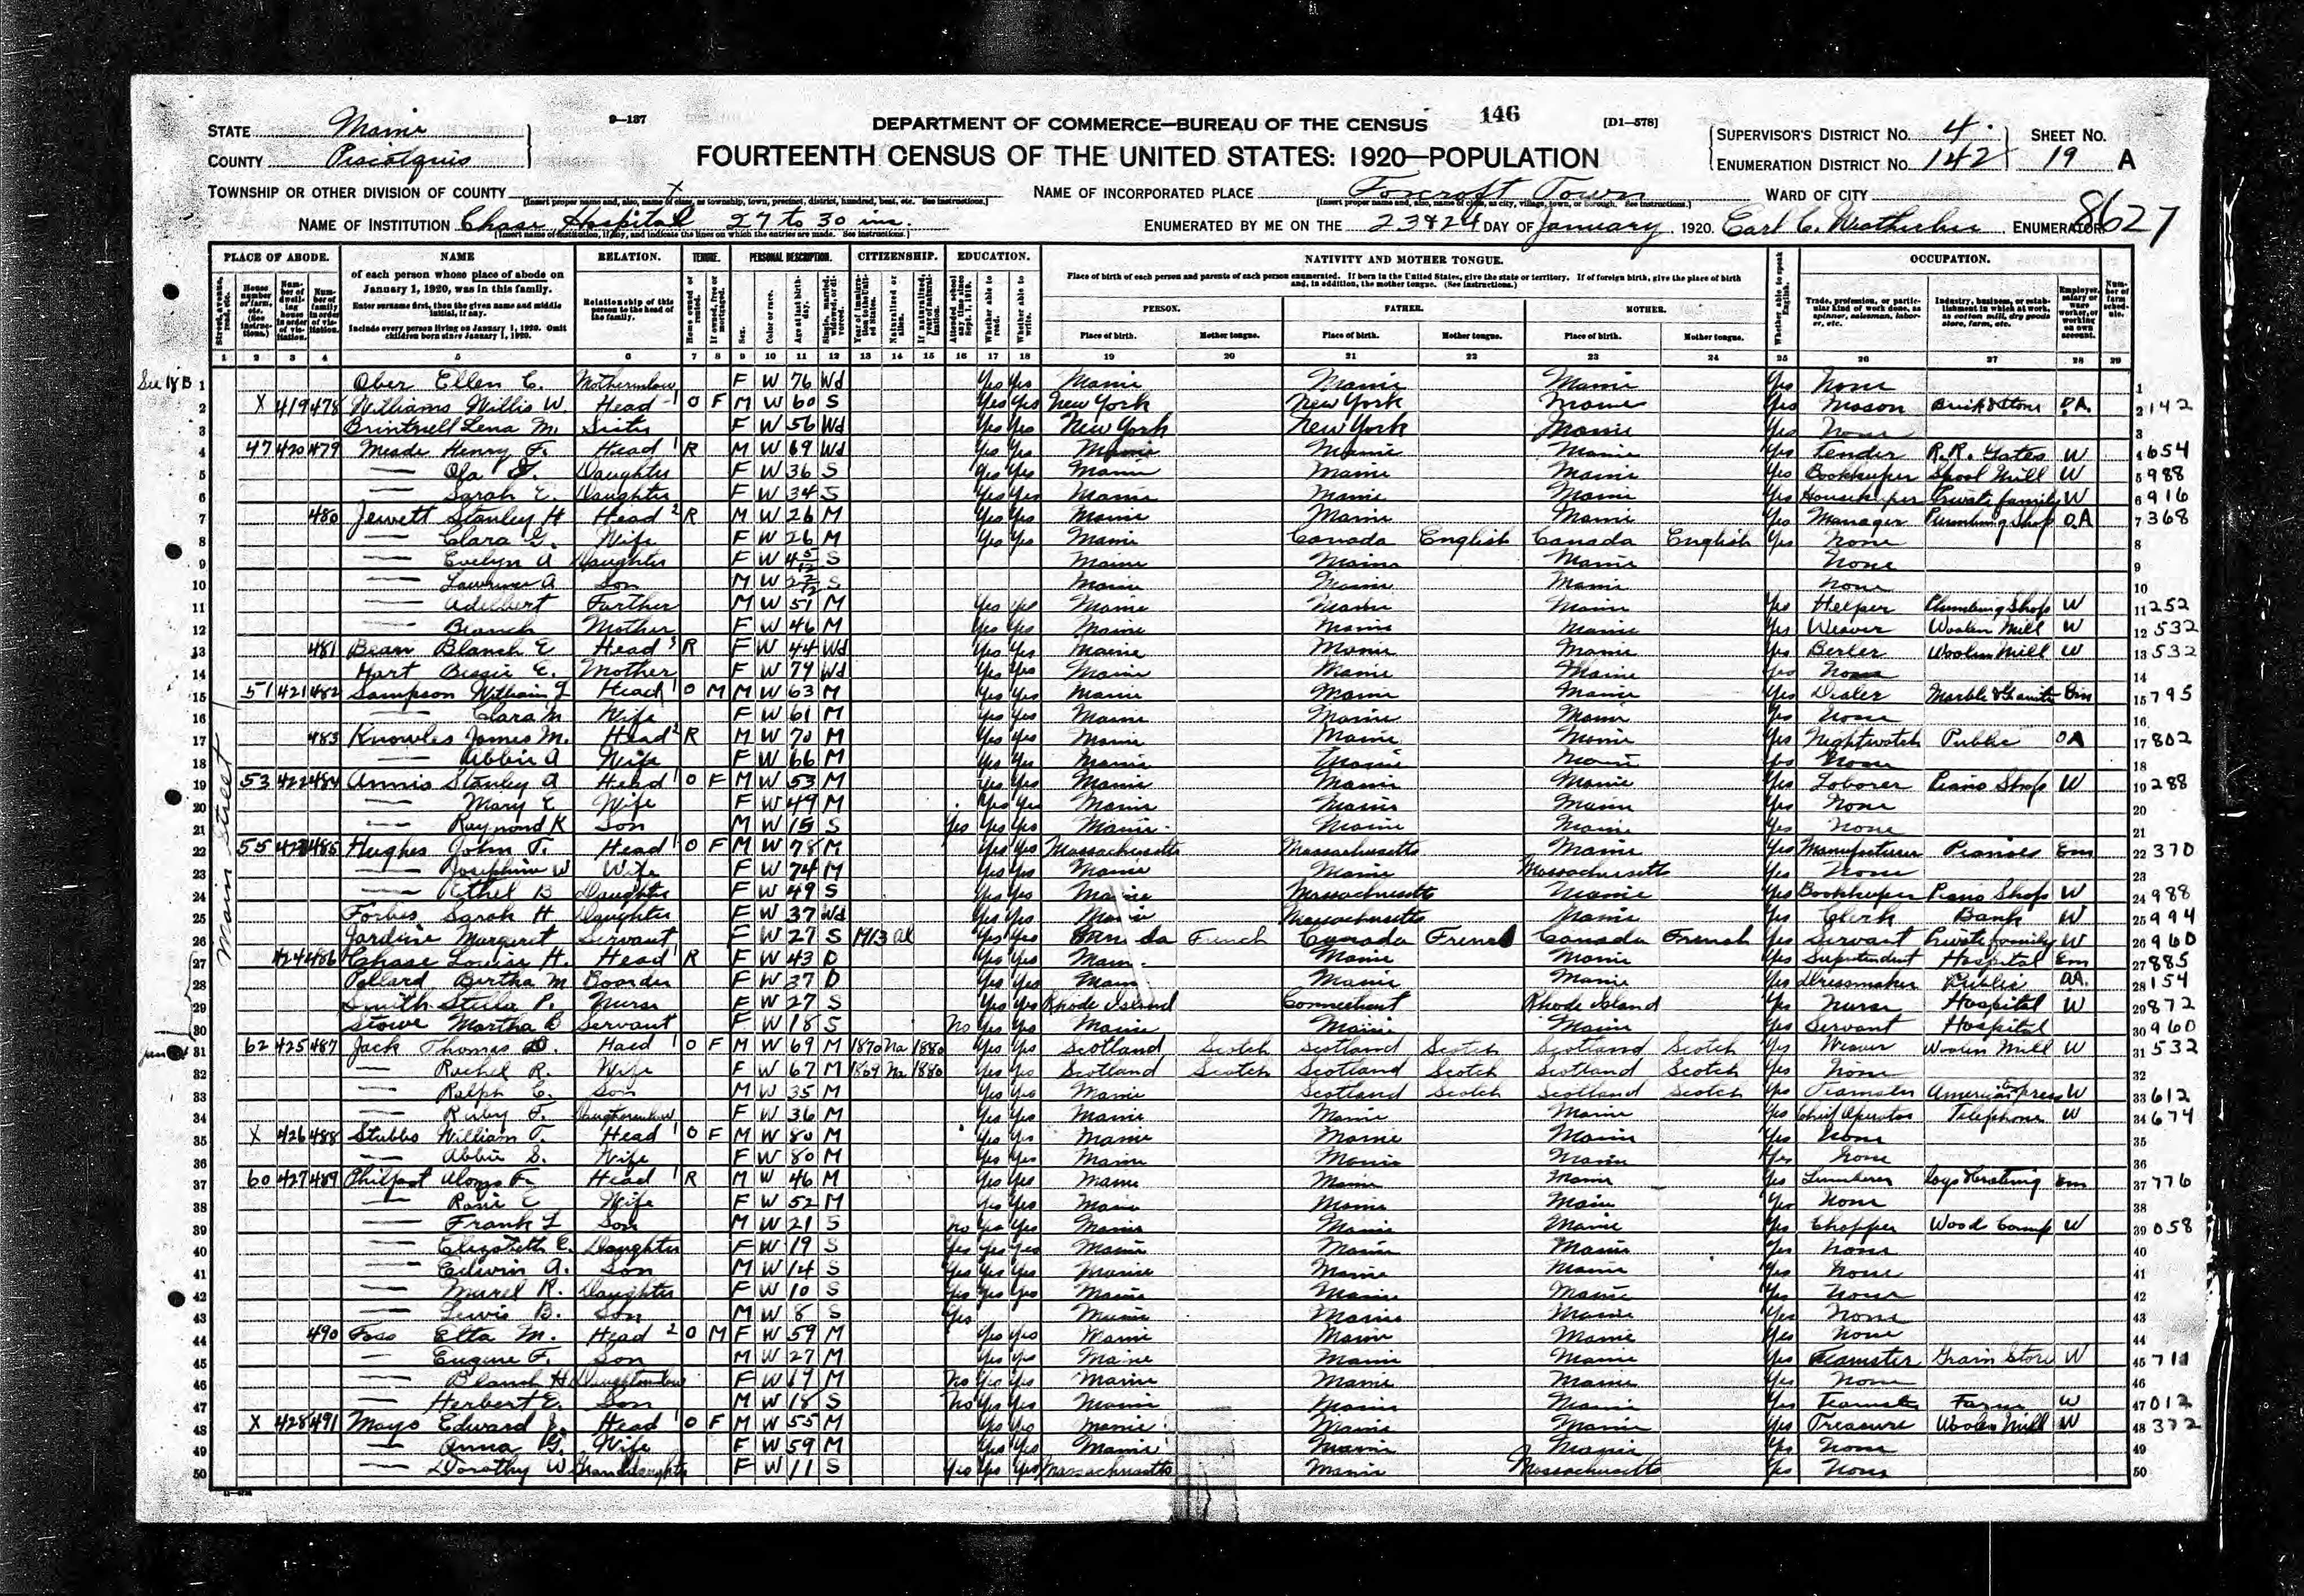 9—137
146
[D1—578]
STATE Maine
COUNTY Piscataquis
DEPARTMENT OF COMMERCE—BUREAU OF THE CENSUS
FOURTEENTH CENSUS OF THE UNITED STATES: 1920—POPULATION
SUPERVISOR'S DISTRICT No. 4
ENUMERATION DISTRICT No. 142
SHEET No. 19 A
TOWNSHIP OR OTHER DIVISION OF COUNTY x
NAME OF INCORPORATED PLACE Foxcroft Town
WARD OF CITY
NAME OF INSTITUTION Chase Hospital 27 to 30 inc.
ENUMERATED BY ME ON THE 23 & 24 DAY OF January, 1920. Earl C. ENUMERATOR
8627
PLACE OF ABODE. NAME RELATION. TENURE. PERSONAL DESCRIPTION. CITIZENSHIP. EDUCATION. NATIVITY AND MOTHER TONGUE. OCCUPATION.
of each person whose place of abode on January 1, 1920, was in this family.
Enter surname first, then the given name and middle initial, if any.
Include every person living on January 1, 1920. Omit children born since January 1, 1920.
Relationship of this person to the head of the family.
Place of birth of each person and parents of each person enumerated. If born in the United States, give the state or territory. If of foreign birth, give the place of birth and, in addition, the mother tongue. (See instructions.)
PERSON. FATHER. MOTHER.
Place of birth. Mother tongue. Place of birth. Mother tongue. Place of birth. Mother tongue.
1 2 3 4 5 6 7 8 9 10 11 12 13 14 15 16 17 18 19 20 21 22 23 24 25 26 27 28 29
Main Street
See 18 B 1 Ober Ellen C. Motherinlaw F W 76 Wd Yes Yes Maine Maine Maine Yes None 1
2 X 419 478 Williams Willis W. Head 1 O F M W 60 S Yes Yes New York New York Maine Yes Mason Brick & Stone OA 2 142
3 Lena M. Sister F W 56 Wd Yes Yes New York New York Maine Yes None 3
4 47 420 479 Meade Henry F. Head 1 R M W 69 Wd Yes Yes Maine Maine Maine Yes Tender R.R. Gates W 4 654
5 — Ola Daughter F W 36 S Yes Yes Maine Maine Maine Yes Bookkeeper Spool Mill W 5 988
6 — Sarah E. Daughter F W 34 S Yes Yes Maine Maine Maine Yes Housekeeper Private family W 6 916
7 480 Jewett Stanley H Head 2 R M W 26 M Yes Yes Maine Maine Maine Yes Manager Plumbing Shop OA 7 368
8 — Clara G. Wife F W 26 M Yes Yes Maine Canada English Canada English Yes None 8
9 — Evelyn A Daughter F W 4 5/12 S Maine Maine Maine None 9
10 — Lawrence A Son M W 2 7/12 S Maine Maine Maine None 10
11 — Adelbert Farther M W 51 M Yes Yes Maine Maine Maine Yes Helper Plumbing Shop W 11 252
12 — Blanch Mother F W 46 M Yes Yes Maine Maine Maine Yes Weaver Woolen Mill W 12 532
13 481 Bean Blanch E Head 3 R F W 44 Wd Yes Yes Maine Maine Maine Yes Berler Woolen Mill W 13 532
14 Hart Bessie E. Mother F W 79 Wd Yes Yes Maine Maine Maine Yes None 14
15 51 421 482 Sampson William Head 1 O M M W 63 M Yes Yes Maine Maine Maine Yes Dealer Marble & Granite Em 15 795
16 — Clara M Wife F W 61 M Yes Yes Maine Maine Maine Yes None 16
17 483 Knowles James M. Head 2 R M W 70 M Yes Yes Maine Maine Maine Yes Nightwatch Public OA 17 802
18 — Abbie A Wife F W 66 M Yes Yes Maine Maine Maine Yes None 18
19 53 422 484 Annis Stanley A Head 1 O F M W 53 M Yes Yes Maine Maine Maine Yes Laborer Piano Shop W 19 288
20 — Mary E Wife F W 49 M Yes Yes Maine Maine Maine Yes None 20
21 — Raymond K Son M W 15 S Yes Yes Yes Maine Maine Maine Yes None 21
22 55 423 485 Hughes John T. Head 1 O F M W 78 M Yes Yes Massachusetts Massachusetts Maine Yes Manufacturer Pianoes Em 22 370
23 — Josephine W Wife F W 74 M Yes Yes Maine Maine Massachusetts Yes None 23
24 — Ethel B Daughter F W 49 S Yes Yes Maine Massachusetts Maine Yes Bookkeeper Piano Shop W 24 988
25 Forbes Sarah H Daughter F W 37 Wd Yes Yes Maine Massachusetts Maine Yes Clerk Bank W 25 994
26 Jardine Margaret Servant F W 27 S 1913 Al Yes Yes Canada French Canada French Canada French Yes Servant Private family W 26 960
27 424 486 Chase Louise H. Head 1 R F W 43 D Yes Yes Maine Maine Maine Yes Suprtendent Hospital Em 27 885
28 Pollard Bertha M Boarder F W 37 D Yes Yes Maine Maine Maine Yes Dressmaker Public OA. 28 154
29 Smith Stella P. Nurse F W 27 S Yes Yes Rhode Island Connecticut Rhode Island Yes Nurse Hospital W 29 872
30 Stowe Martha B Servant F W 18 S No Yes Yes Maine Maine Maine Yes Servant Hospital 30 960
31 62 425 487 Jack Thomas D. Haed 1 O F M W 69 M 1870 Na 1880 Yes Yes Scotland Scotch Scotland Scotch Scotland Scotch Yes Weaver Woolen Mill W 31 532
32 — Rachel R. Wife F W 67 M 1869 Na 1880 Yes Yes Scotland Scotch Scotland Scotch Scotland Scotch Yes None 32
33 — Ralph C. Son M W 35 M Yes Yes Maine Scotland Scotch Scotland Scotch Yes Teamster American Express W 33 612
34 — Ruby F. Daughterinlaw F W 36 M Yes Yes Maine Maine Maine Yes Chief Operator Telephone W 34 674
35 X 426 488 Stubbs William T. Head 1 O F M W 80 M Yes Yes Maine Maine Maine Yes None 35
36 — Abbie S. Wife F W 80 M Yes Yes Maine Maine Maine Yes None 36
37 60 427 489 Philpot Alonzo F. Head 1 R M W 46 M Yes Yes Maine Maine Maine Yes Em 37 776
38 — Rosie E Wife F W 52 M Yes Yes Maine Maine Maine Yes None 38
39 — Frank L Son M W 21 S No Yes Yes Maine Maine Maine Yes Chopper Wood Camp W 39 058
40 — Elizabeth C. Daughter F W 19 S Yes Yes Yes Maine Maine Maine Yes None 40
41 — Edwin A. Son M W 14 S Yes Yes Yes Maine Maine Maine Yes None 41
42 — Murel R. Daughter F W 10 S Yes Yes Yes Maine Maine Maine Yes None 42
43 — Lewis B. Son M W 8 S Yes Maine Maine Maine Yes None 43
44 490 Foss Etta M. Head 2 O M F W 59 M Yes Yes Maine Maine Maine Yes None 44
45 — Eugene F. Son M W 27 M Yes Yes Maine Maine Maine Yes Teamster Grain Store W 45 711
46 — Blanch H Daughterinlaw F W 19 M No Yes Yes Maine Maine Maine Yes None 46
47 — Herbert E. Son M W 18 S No Yes Yes Maine Maine Maine Yes Teamster Farm W 47 012
48 X 428 491 Mayo Edward Head 1 O F M W 55 M Yes Yes Maine Maine Maine Yes Treasure Woolen Mill W 48 372
49 — Anna G. Wife F W 59 M Yes Yes Maine Maine Maine Yes None 49
50 — Dorothy W Granddaughter F W 11 S Yes Yes Yes Massachusetts Maine Massachusetts Yes None 50